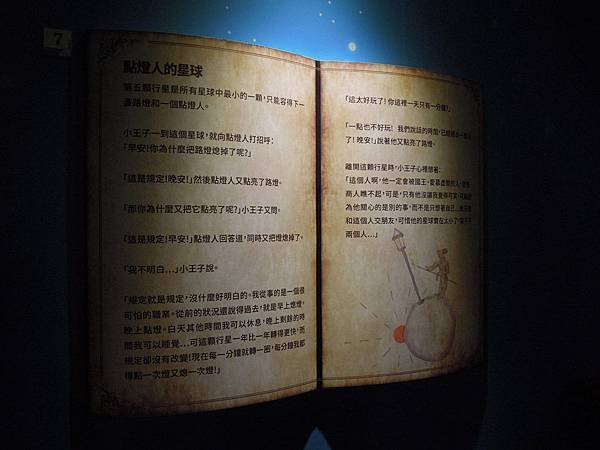 7
點燈人的星球
第五顆行星是所有星球中最小的一顆,只能容得下一
盞路燈和一個點燈人。
小王子一到這個星球,就向點燈人打招呼:
「早安!你為什麼把路燈熄掉了呢?」
「這是規定!晚安!」然後點燈人又點亮了路燈。
「那你為什麼又把它點亮了呢?」小王子又問。
「這是規定!早安!」點燈人回答道,同時又把燈熄掉了。
「我不明白...」小王子說。
「規定就是規定,沒什麼好明白的。我從事的是一個很
可怕的職業。從前的狀況還說得過去,就是早上熄燈,
晚上點燈。白天其他時間我可以休息,晚上剩餘的時
間我可以睡覺...可這顆行星一年比一年轉得更快,而
規定卻沒有改變!現在每一分鐘就轉一圈,每分鐘我都
得點一次燈又熄一次燈!」
「這太好玩了!你這裡一天只有一分鐘!」
「一點也不好玩! 我們說話的時間,已經過去一個月
了! 晚安!」說著他又點亮了路燈。
離開這顆行星時,小王子心裡想著:
「這個人啊,他一定會被國王、愛慕虛榮的人、
商人瞧不起,可是,只有他沒讓我覺得可笑,
為他關心的是別的事,而不是只想著自己。
和這個人交朋友,可惜他的星球實在太小了,
兩個人...」